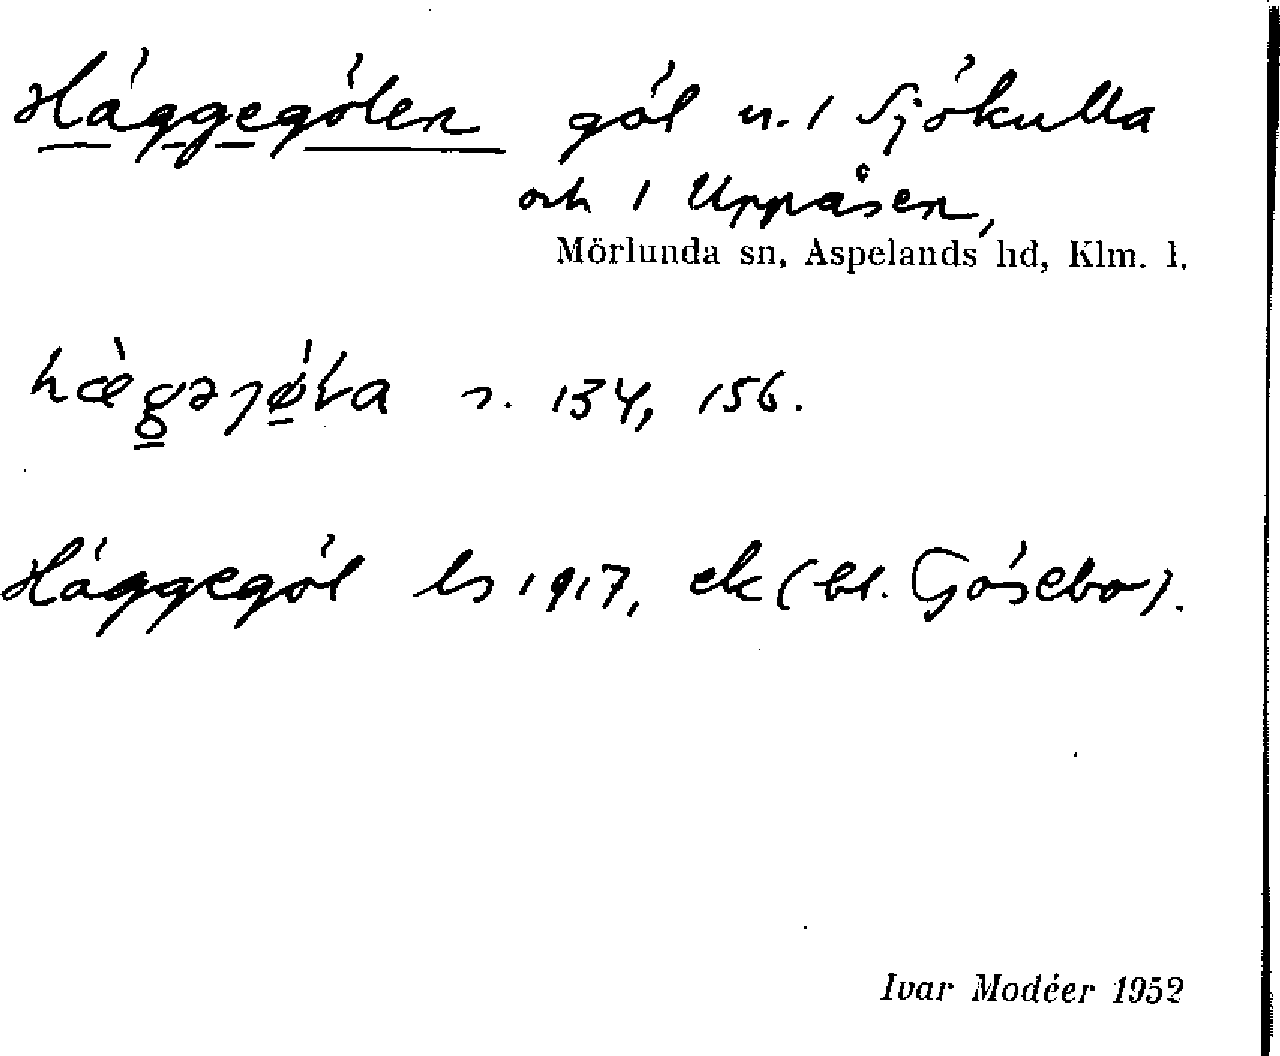 Häggegölen göl u. / Sjökulla
och / Uppåsen,
Mörlunda sn, Aspelands hd, Klm. l.
s. 134, 156.
Häggegöl ls 1917, ek (bl. Gösebo).
Ivar Modéer 1952